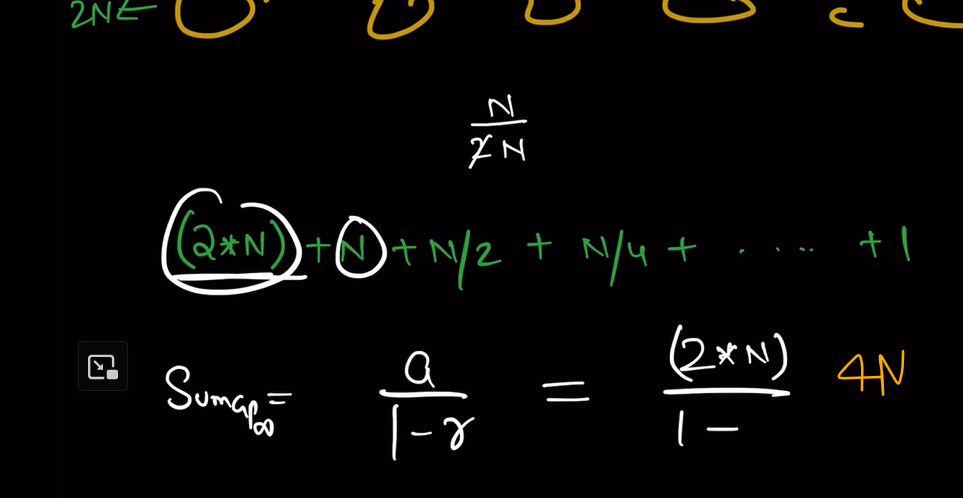 2N
N
2N
(2*N) + N + N/2 + N/4 + . . . . . + 1
Sumgp∞ = a / 1-r = (2*N) / 1- 4N